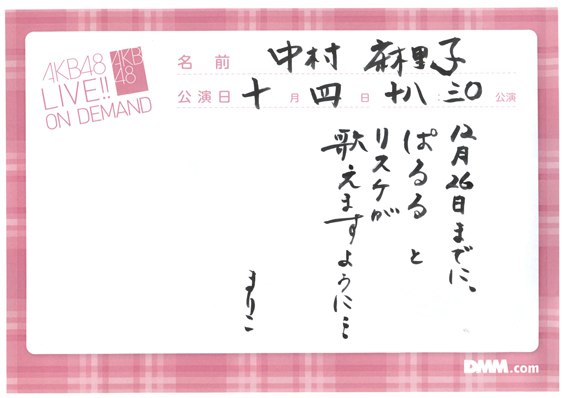 AKB48
LIVE!!
ON DEMAND
AKB
48
名前 中村 麻里子
公演日 十 月 四 日 十八 : 三〇 公演
12月26日までに、
ぱるると
リスケが
歌えますように…
まりこ
DMM.com